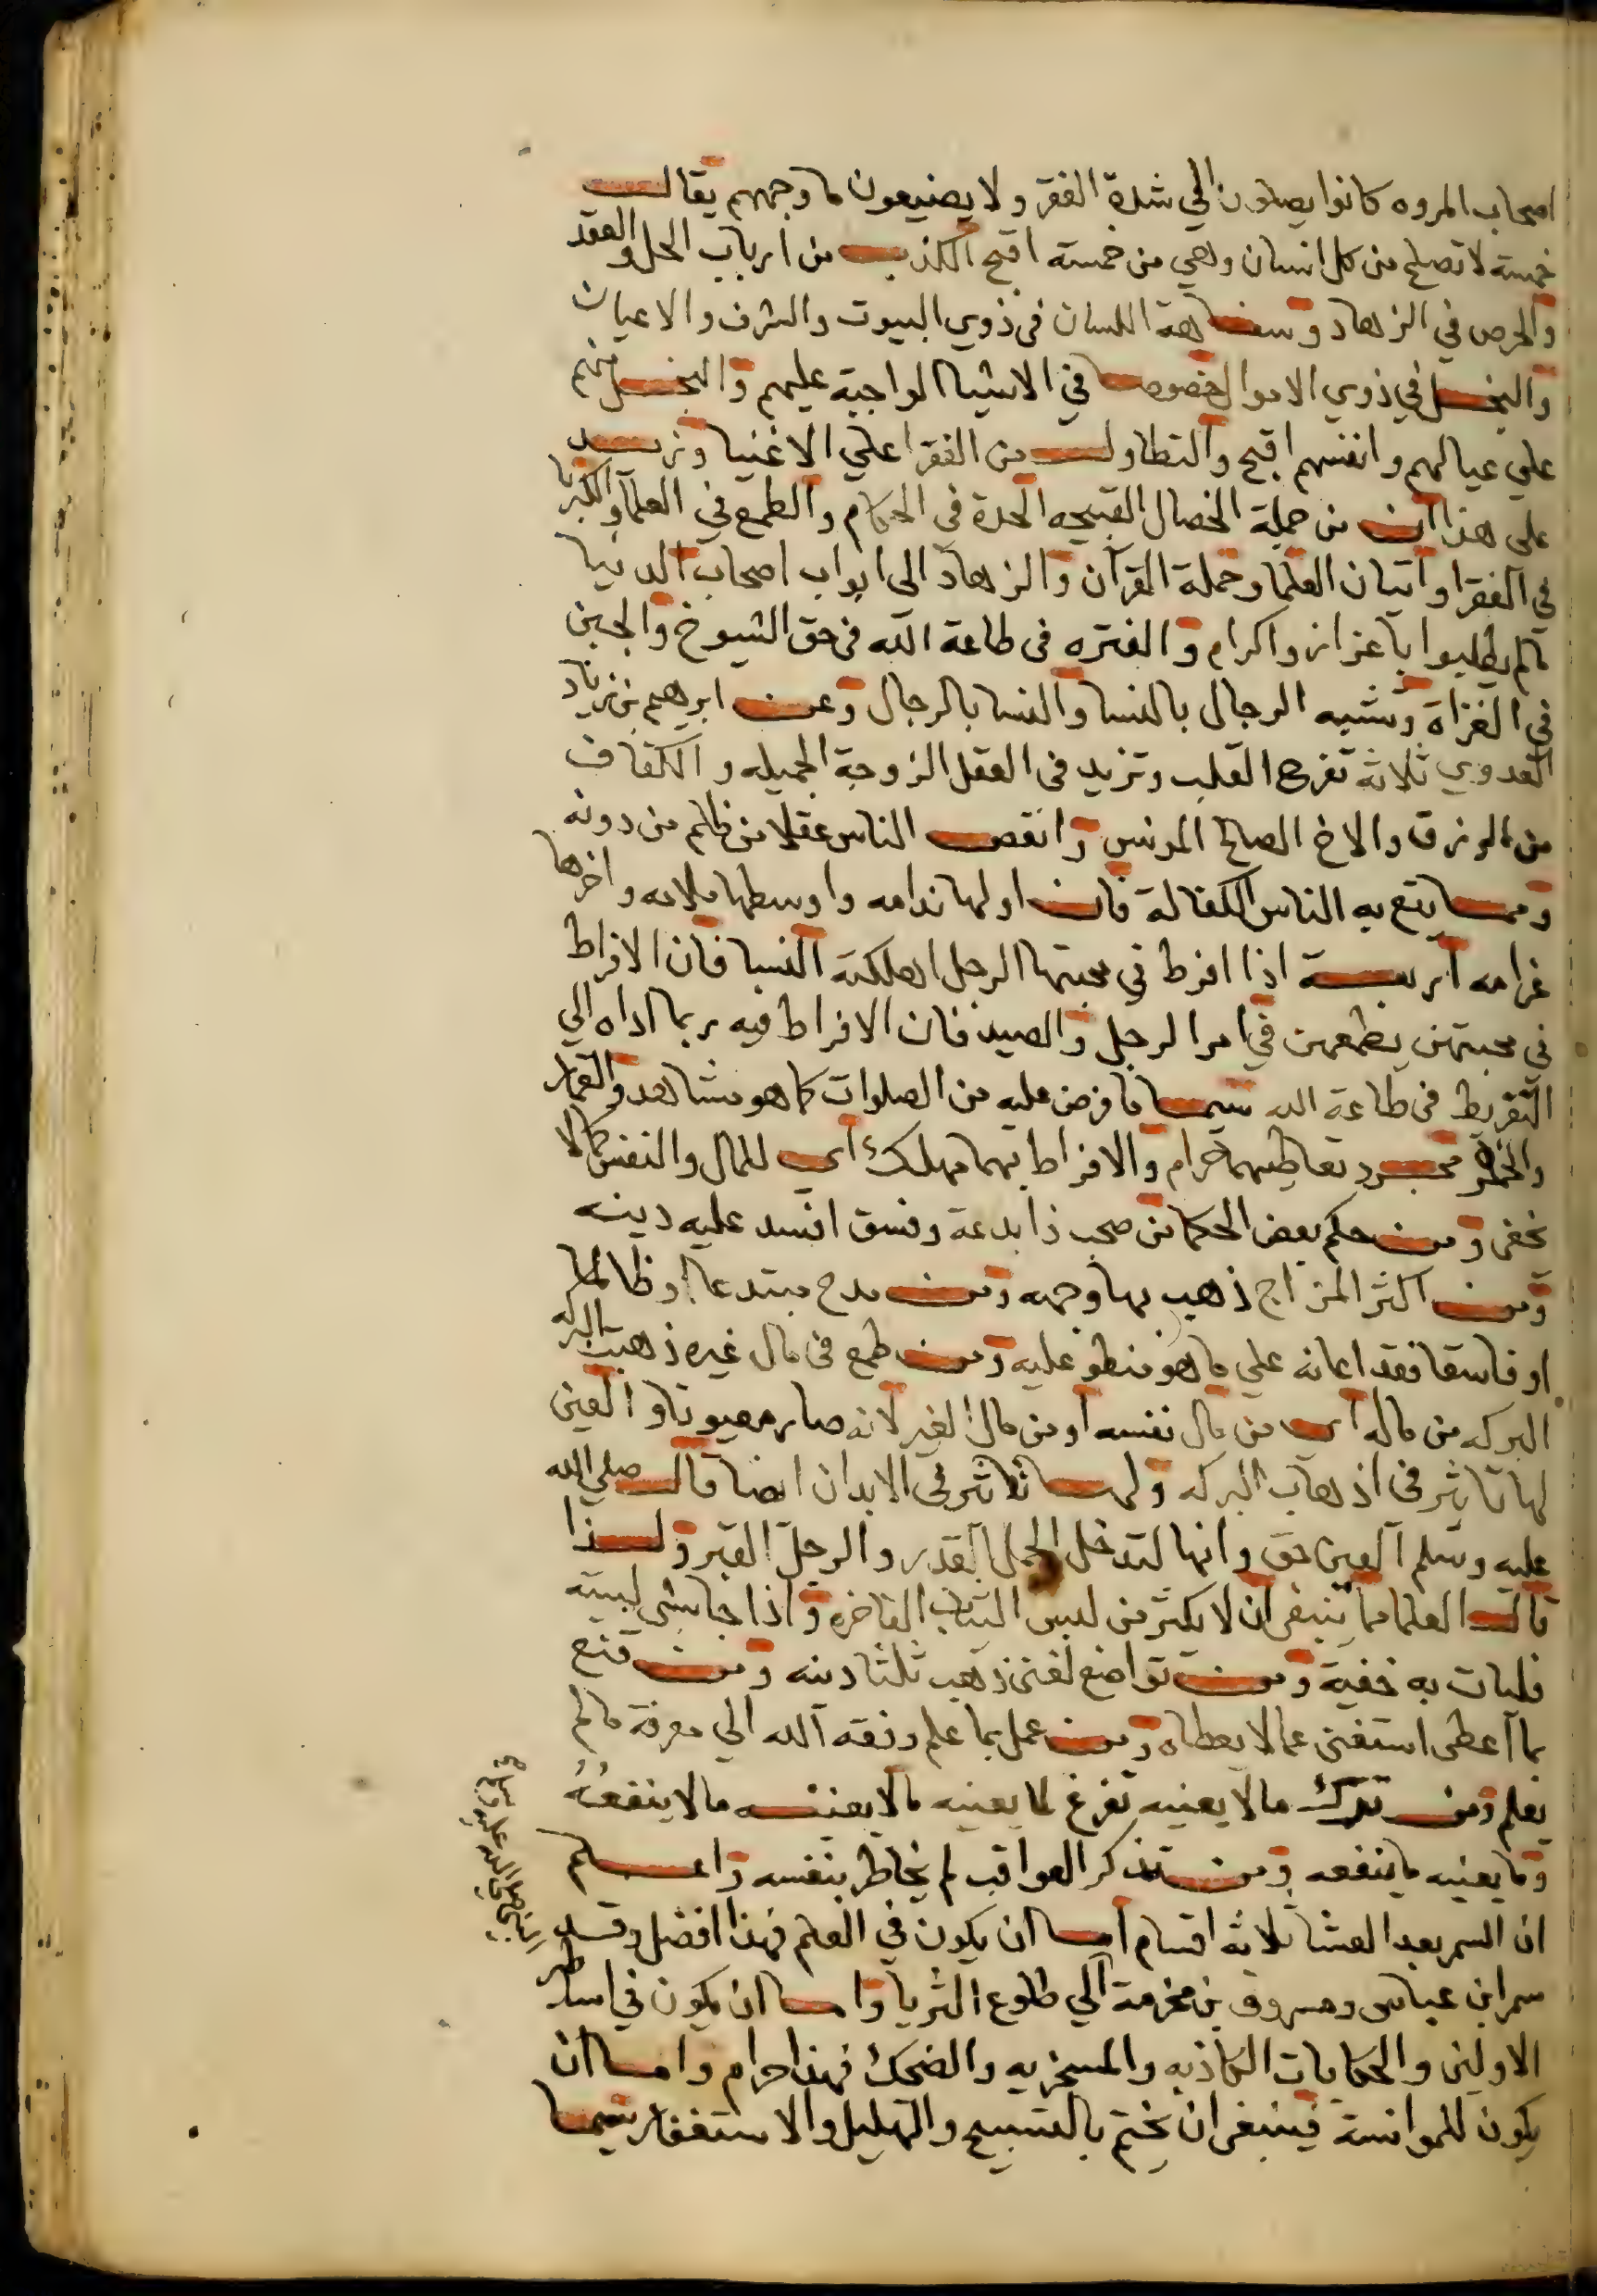 اصحاب المروه كانوا يصلون الي شدة الفقر ولا يضيعون ما وجههم يقال
خمسة لا تصلح من كل انسان وهي من خمسة اقبح الكذب من ارباب الحل والعقد
والحرص في الزهاد وسفاهة اللسان في ذوي البيوت والشرف والاعيان
والبخل في ذوي الاموال خصوصا في الاشيا الواجبة عليهم والبخل منهم
علي عيالهم وانفسهم اقبح والتطاول من الفقرا علي الاغنيا وزيد
علي هذا ان من جملة الخصال القبيحه الحدة في الحكام والطمع في العلما والكبريا
في الفقرا واتيان العلما وحملة القرآن والزهاد الى ابواب اصحاب الدنيا
مالم يطلبوا باعزاز واكرام والفتره في طاعة الله في حق الشيوخ والجبن
في الغزاة وتشبه الرجال بالنسا والنسا بالرجال وعن ابرهيم بن زياد
العدوي ثلاثة تفرح القلب وتزيد في العقل الزوجة الجميله والكفاف
من الرزق والاخ الصالح المونس وانقص الناس عقلا من ظلم من دونه
ومما يقع به الناس الكفالة فان اولها ندامه واوسطها ملامه واخرها
غرامه اربعة اذا افرط في محبتها الرجل اهلكته النسا فان الافراط
في محبتهن يطمعهن في امر الرجل والصيد فان الافراط فيه ربما اداه الي
التفريط في طاعة الله سيما ما فرض عليه من الصلوات كما هو مشاهد والقمار
والخمر فمجرد تعاطيهما حرام والافراط بهما مهلك اي للمال والنفس كما لا
يخفى ومن حكم بعض الحكما من صحب ذا بدعة وفسق افسد عليه دينه
ومن اكثر المزاح ذهب بها وجهه ومن مدح مبتدعا او ظالما
او فاسقا فقد اعانه علي ما هو منطو عليه ومن طمع في مال غيره ذهبت البركه
البركه من ماله اي من مال نفسه او من مال الغير لانه صار معيونا والعين
لها تاثير في اذهاب البركه ولها تاثير في الابدان ايضا قال صلي الله
عليه وسلم العين حق وانها لتدخل الجمل القدر والرجل القبر ولذا
قال العلما مما ينبغي ان لا يكثر من لبس الثياب الفاخره واذا جا بشي لبيته
فليات به خفية ومن تواضع لغني ذهب ثلثا دينه ومن قنع
بما اعطى استغنى عما لا يعطاه ومن عمل بما علم وفقه الله الي معرفة مالم
يعلم ومن ترك مالا يعنيه تفرغ لما يعنيه مالا يعنيه مالا ينفعه
وما يعنيه ما ينفعه ومن تذكر العواقب لم يخاطر بنفسه واعلم
ان السمر بعد العشا ثلاثة اقسام اما ان يكون في العلم فهذا افضل وقد
سمر ابن عباس ومسروق بن مخرمة الي طلوع الثريا واما ان يكون في اساطير
الاولين والحكايات الكاذبه والمسخريه والضحك فهذا حرام واما ان
يكون للموانسة فينبغي ان يختم بالتسبيح والتهليل والاستغفار سيما